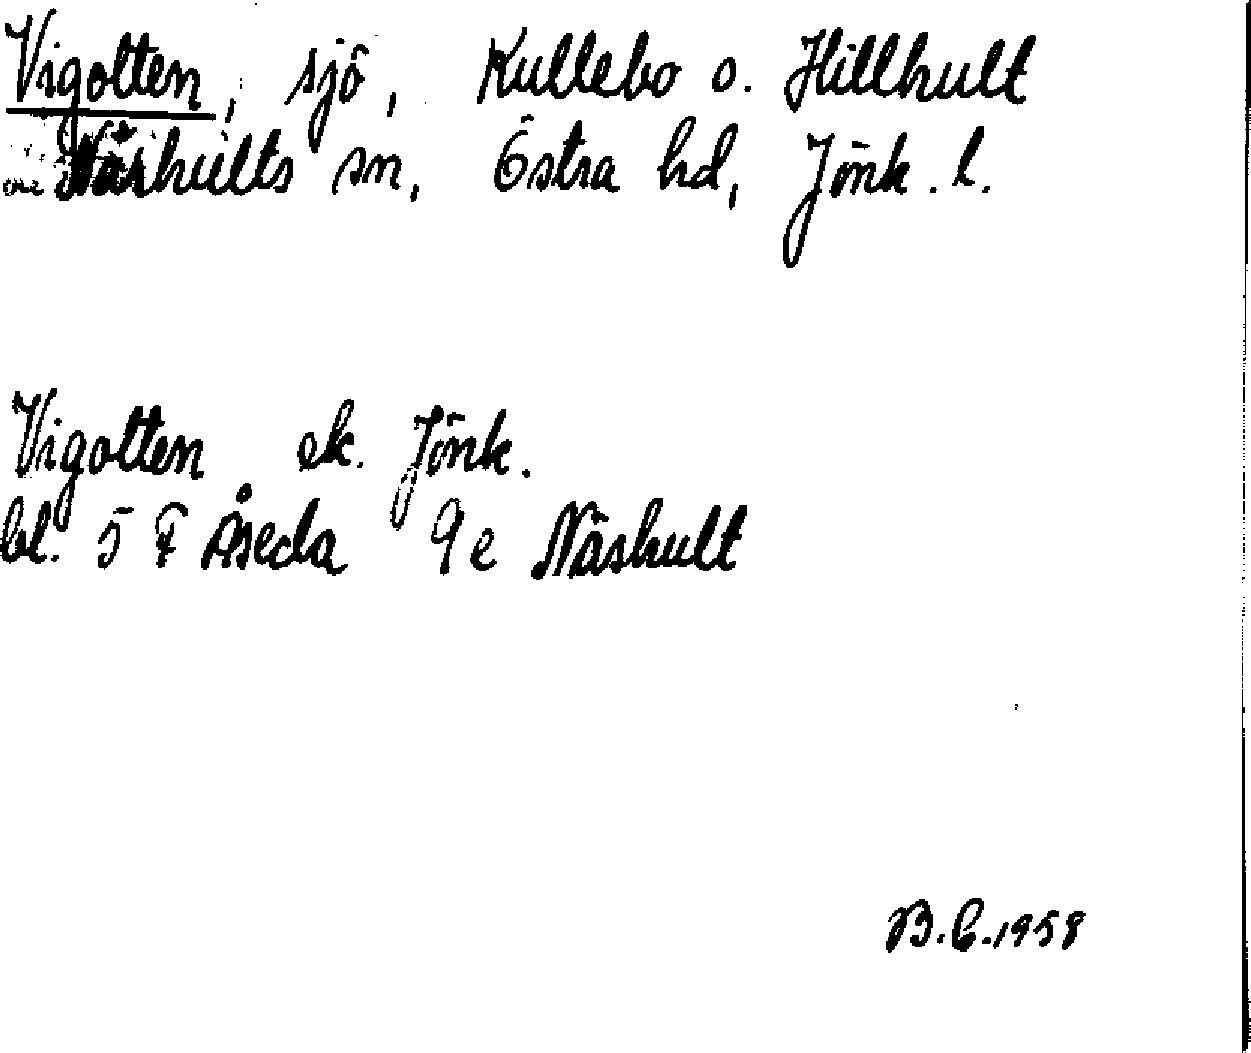 Vigotten, sjö, Kullebo o. Hillhult
Näshults sn, Östra hd, Jönk. l.
Vigotten ek. Jönk.
bl. 5 F Åseda 9e Näshult
B.C.1958